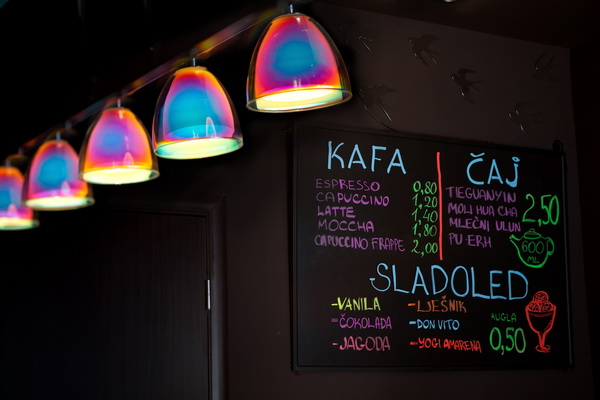 KAFA
ESPRESSO 0,80
CAPUCCINO 1,20
LATTE 1,40
MOCCHA 1,80
CAPUCCINO FRAPPE 2,00
ČAJ
TIEGUANYIN
MOLI HUA CHA
MLEČNI ULUN
PU-ERH
2,50
600
ML
SLADOLED
-VANILA
-ČOKOLADA
-JAGODA
-LJEŠNIK
-DON VITO
-YOGI AMARENA
KUGLA
0,50